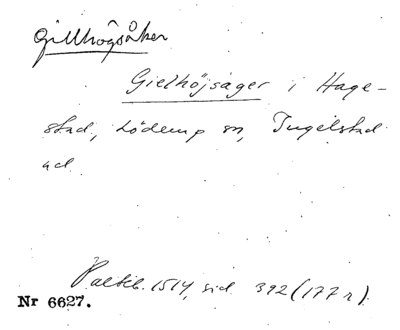 Gillhögsåker
Gielhöjsager i Hage-
stad, Löderup sn, Ingelstad
hd
Palteb. 1514, sid. 392 (177 r).
Nr 6627.